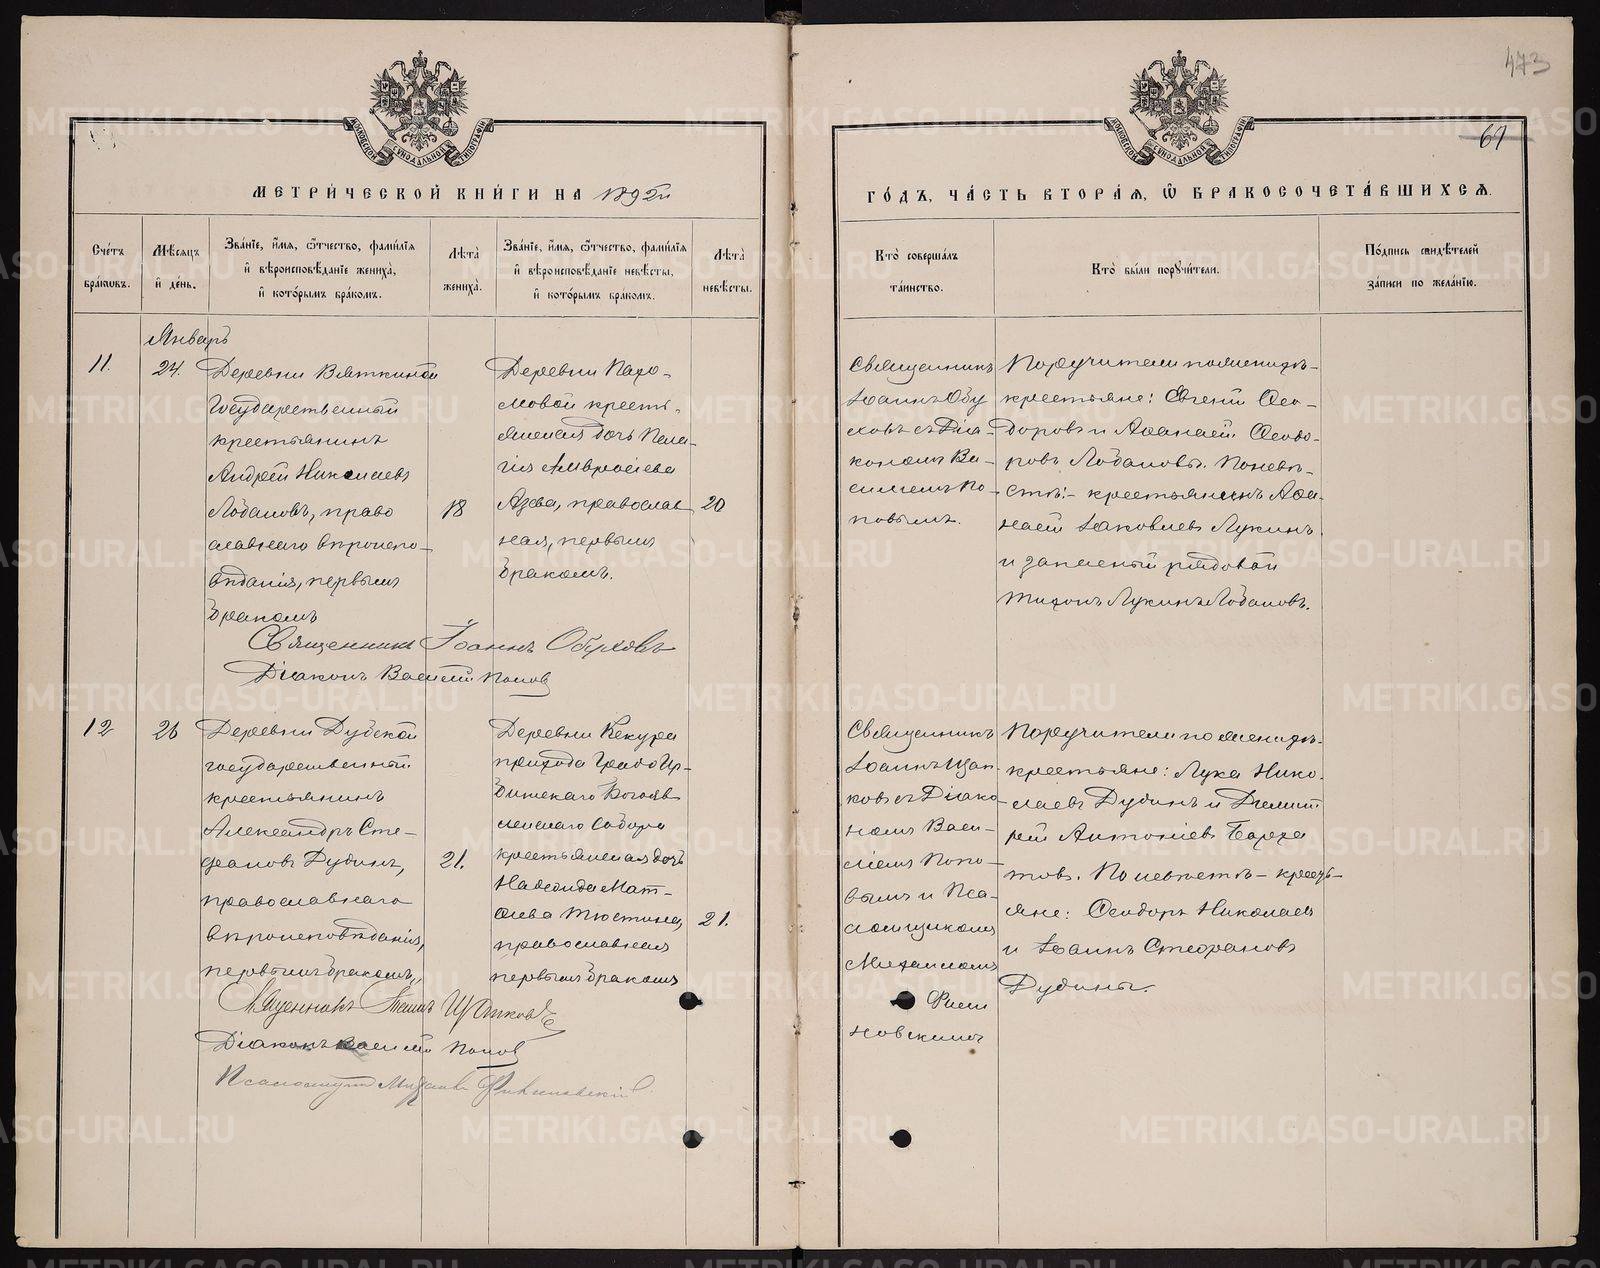 473
67
МОСКОВСКОЙ СѴНОДАЛЬНОЙ ТИПОГРАФІИ
МОСКОВСКОЙ СѴНОДАЛЬНОЙ ТИПОГРАФІИ
МЕТРИ́ЧЕСКОЙ КНИ́ГИ НА 1895й
ГО́ДЪ, ЧА́СТЬ ВТОРА́Я, Ѽ БРАКОСОЧЕТА́ВШИХСЯ.
Сче́тъ бра́кωвъ.
Мѣ́сяцъ и҆ де́нь.
Зва́нїе, и҆́мя, ѻ҆́тчество, фами́лїя
и҆ вѣроисповѣ́данїе жениха̀,
и҆ кото́рымъ бра́комъ.
Лѣта̀ жениха̀.
Зва́нїе, и҆́мя, ѻ҆́тчество, фами́лїя
и҆ вѣроисповѣ́данїе невѣ́сты,
и҆ кото́рымъ бра́комъ.
Лѣта̀ невѣ́сты.
Кто̀ соверша́лъ
та́инство.
Кто̀ бы́ли порꙋчи́тели.
По́дпись свидѣ́телей
за́писи по жела́нїю.
Январь
11.
24.
Деревни Вяткиной
Государственный
крестьянинъ
Андрей Николаевъ
Лобановъ, право
славнаго вѣроиспо-
вѣданія, первымъ
бракомъ
18
Деревни Пахо-
мовой кресть-
янская дочь Пела-
гія Амвросіева
Азева, православ
ная, первымъ
бракомъ.
20
Священникъ
Іоаннъ Обу
ховъ съ Діа-
кономъ Ва-
силіемъ По-
повымъ.
Поручители по женихѣ-
крестьяне: Евгеній Ѳео-
доровъ и Аѳанасій Ѳеодо-
ровъ Лобановы. По невѣ-
стѣ:- крестьянинъ Аѳа-
насій Іаковлевъ Лукинъ.
и запасный рядовой
Тихонъ Лукинъ Лобановъ.
Священникъ Іоаннъ Обуховъ
Діаконъ Василій Поповъ
12
26
Деревни Дубской
государственный
крестьянинъ
Александръ Сте-
фановъ Дудинъ,
православнаго
вѣроисповѣданія,
первымъ бракомъ,
21.
Деревни Кекура
прихода Градо Ир-
битскаго Богояв
ленскаго Собора
крестьянская дочь
Надежда Мат-
ѳіева Тюстина,
православная
первымъ бракомъ
21.
Священникъ
Іоаннъ Щап-
ковъ съ Діако-
номъ Васи-
ліемъ Попо-
вымъ и Пса-
ломщикомъ
Михаиломъ
новскимъ
Поручители по женихѣ-
крестьяне: Лука Нико-
лаевъ Дудинъ и Димит
рій Антоніевъ Барха
товъ. По невѣстѣ- кресть-
яне: Ѳеодоръ Николаевъ
и Іоаннъ Стефановъ
Дудины.
Священникъ Іоаннъ Щапковъ
Діаконъ Василій Поповъ
Псаломщикъ Михаилъ